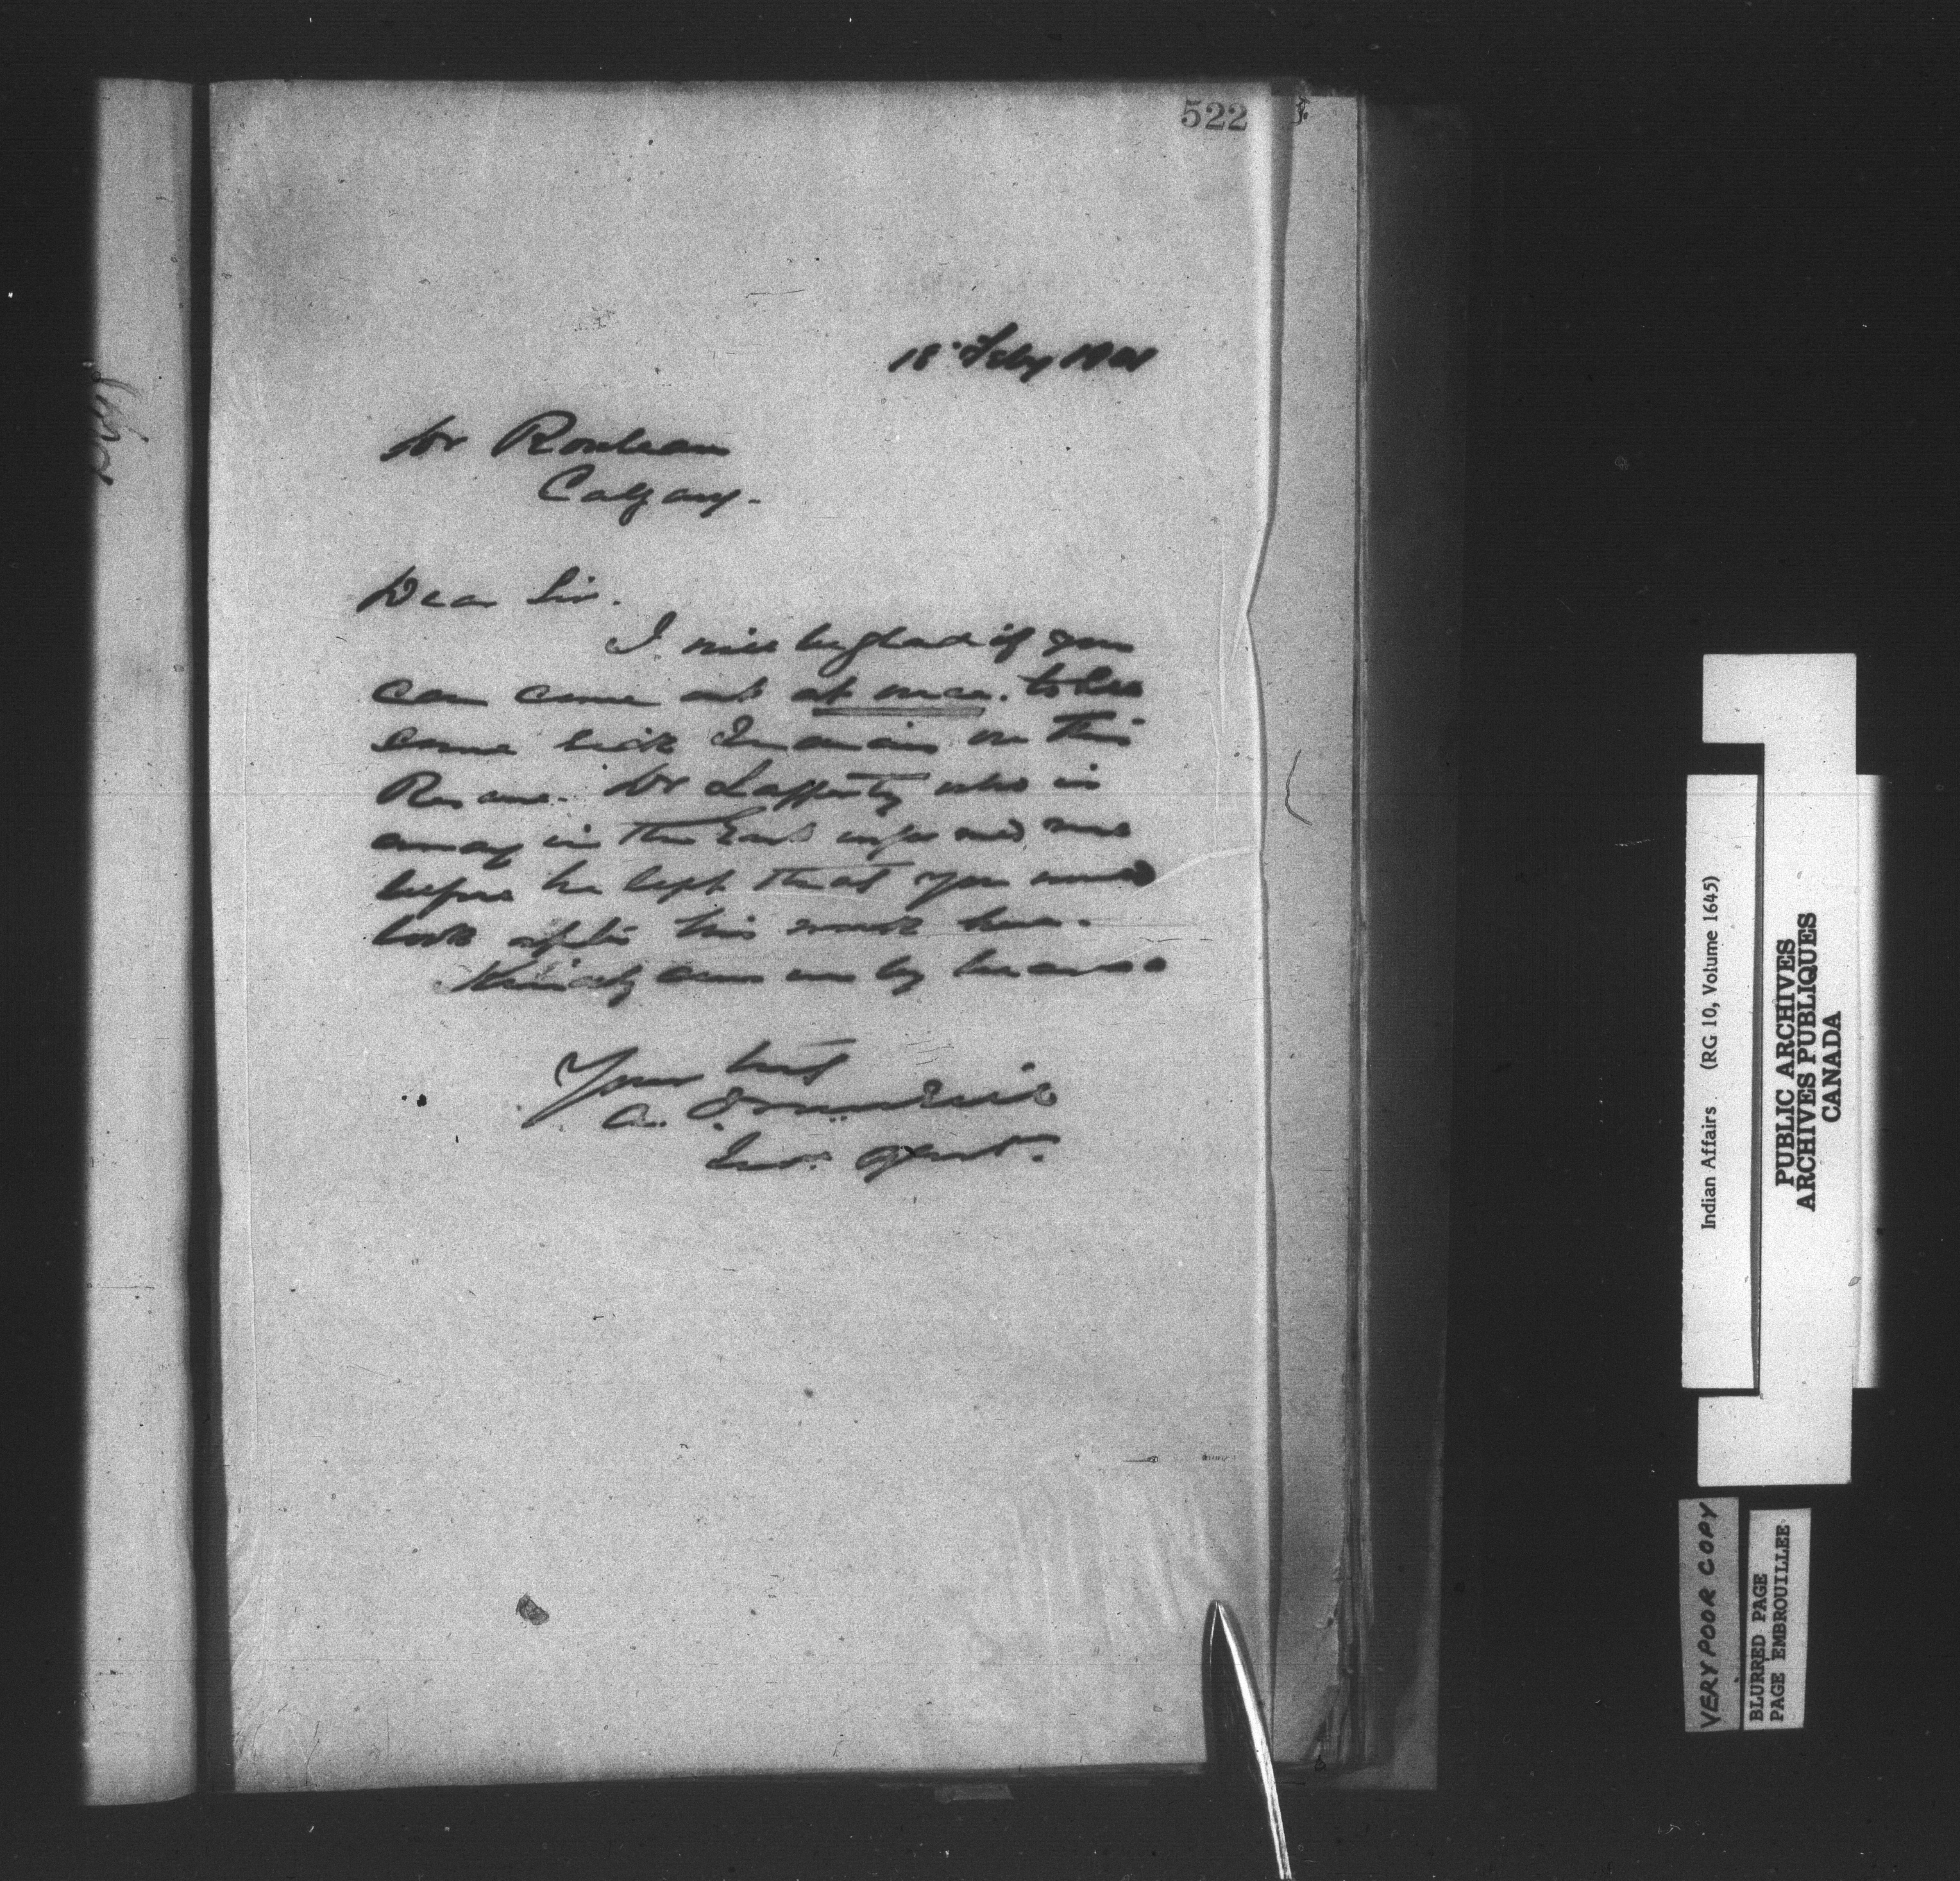 522
18 Feby 1901
Dr Rouleau
Calgary.
Dear Sir.
I will be glad if you
can come out at once. to see
some sick Indians on this
Reserve. Dr Lafferty who is
away in the East informed me
before he left that you would
look after his work here.
Kindly answer by bearer
Yours truly
A.
Ind. Agent.
Indian Affairs (RG 10, Volume 1645)
PUBLIC ARCHIVES
ARCHIVES PUBLIQUES
CANADA
VERY POOR COPY
BLURRED PAGE
PAGE EMBROUILLEE